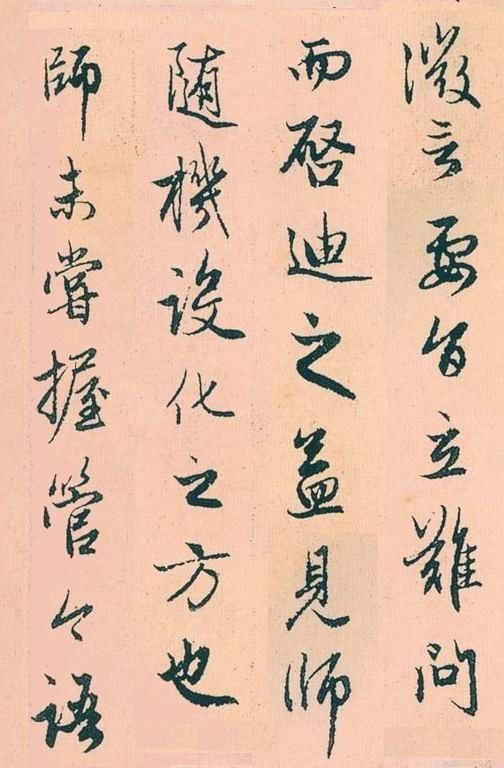 微言要旨立難問
而啓迪之益見師
随機設化之方也
師未嘗握管令語